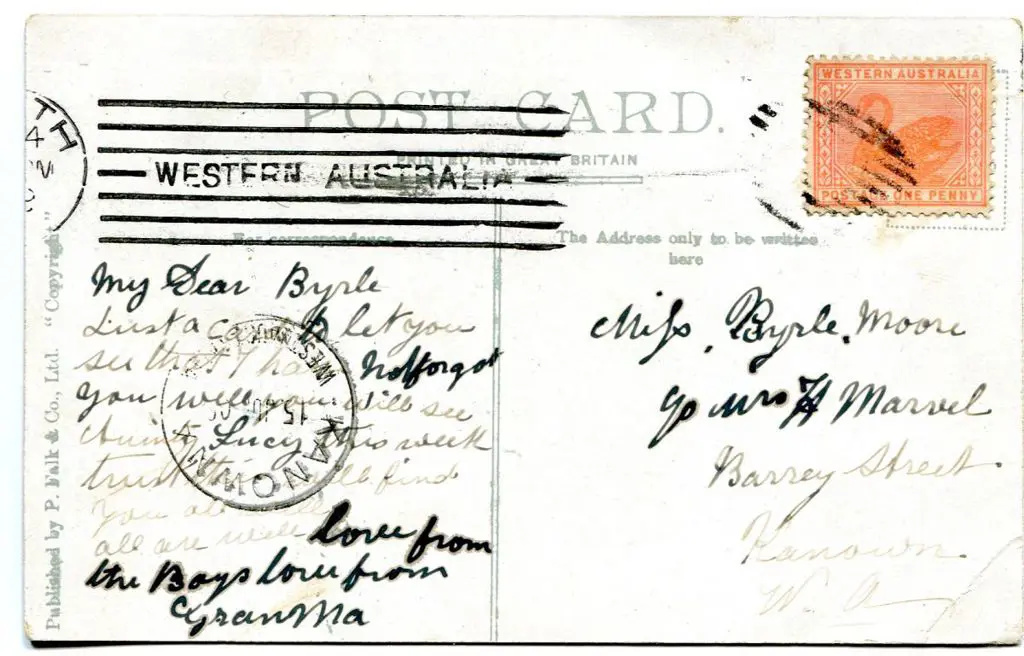 POST CARD.
PRINTED IN GREAT BRITAIN
WESTERN AUSTRALIA
WESTERN AUSTRALIA
POSTAGE ONE PENNY
TH
4
For correspondence
The Address only to be written
here
Published by P. Falk & Co., Ltd. "Copyright"
My Dear Byrle
Just a to let you
see that I Not forgot
you well you will see
Aunty Lucy this week
trust will find
you all
all are well love from
the Boys love from
GranMa
KANOWNA
WEST
15
Miss. Byrle. Moore
c/o Mrs H Marvel
Barrey Street.
Kanowna
W. A